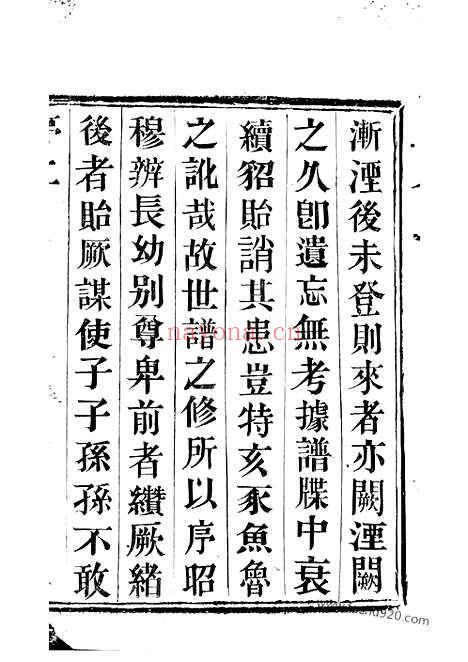 漸湮後未登則來者亦闕湮闕
之久卽遺忘無考據譜牒中衰
續貂貽誚其患豈特亥豕魚魯
之訛哉故世譜之修所以序昭
穆辨長幼别尊卑前者纘厥緒
後者貽厥謀使子子孫孫不敢
nayona.cn